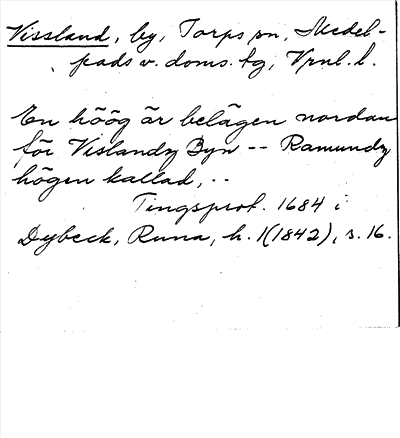 Vissland, by, Torps sn, Medel-
pads v. doms. tg, Vrnl. l.
En höög är belägen nordan
för Vislandz Byn -- Ramundz
högen kallad, --
Tingsprot. 1684 i
Dybeck, Runa, h. 1(1842), s. 16.